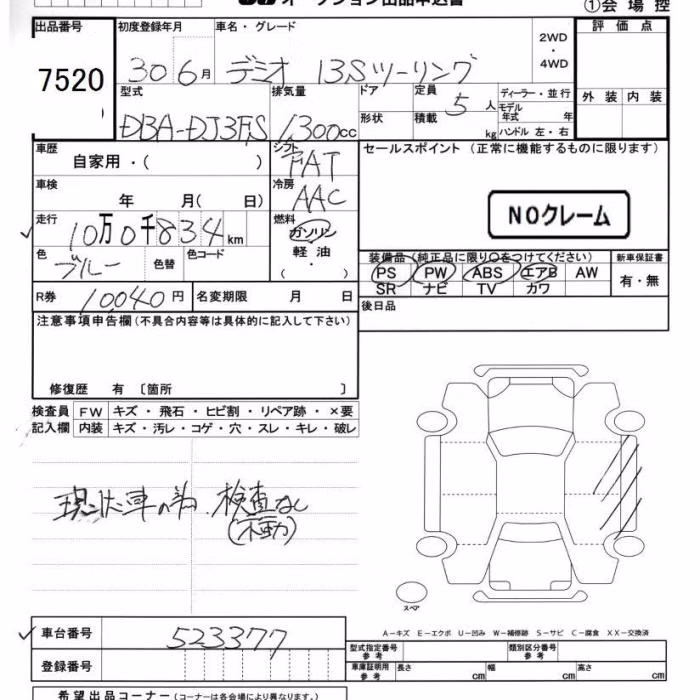 オークション出品申込書
①会場控
出品番号 初度登録年月 車名・グレード 評価点
7520 30 6月 デミオ 13Sツーリング 2WD・4WD
型式 排気量 ドア 定員 5人 ディーラー・並行 外装 内装
DBA-DJ3FS 1,300cc 形状 積載 kg モデル年式 年
ハンドル 左・右
車歴 シフト セールスポイント (正常に機能するものに限ります)
自家用・( ) FAT
車検 冷房
年 月( 日) AAC NOクレーム
走行 燃料
10万0千834km ガソリン
色 色替 色コード 軽油 装備品(純正品に限り○をつけてください) 新車保証書
ブルー ・( ) PS PW ABS エアB AW 有・無
SR ナビ TV カワ
R券 10,040円 名変期限 月 日 後日品
注意事項申告欄(不具合内容等は具体的に記入して下さい)
修復歴 有 〔箇所 〕
検査員 FW キズ・飛石・ヒビ割・リペア跡・×要
記入欄 内装 キズ・汚レ・コゲ・穴・スレ・キレ・破レ
現状車の為、検査なし
(不動)
スペア
車台番号 523377
A-キズ E-エクボ U-凹み W-補修跡 S-サビ C-腐食 XX-交換済
登録番号 型式指定番号 参考 類別区分番号 参考
車庫証明用 参考 長さ cm 幅 cm 高さ cm
希望出品コーナー(コーナーは各会場により異なります。)